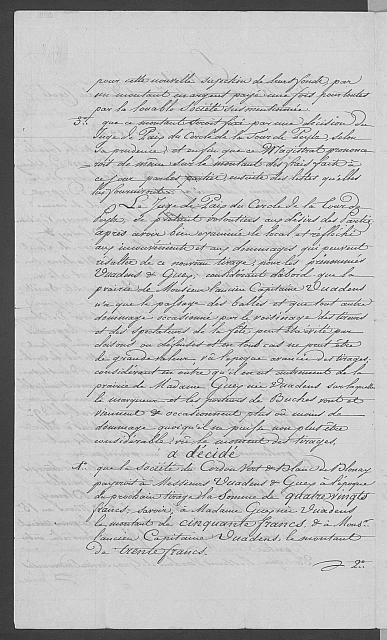 pour cette nouvelle sujettion de leurs fonds par
un montant en argent payé une fois pour toutes
par la louable Société susmentionnée.
3°. que ce montant seroit fixé par une décision du
Juge de Paix du Cercle de la Tour de Peylz, selon
sa prudence; et enfin que ce Magistrat prononce
roit de même sur le montant des frais fait à
ce jour par les parties, ensuite des listes qu'elles
lui fourniront.
Le Juge de Paix du Cercle de la Tour de
Peylz, se prêtant volontiers aux désirs des Parties
après avoir bien examiné le local et réfléchi
aux inconvéniens et aux dommages qui peuvent
résulter de ce nouveau tirage, pour les prénommés
Vuadens & Guex, considérant d'abord que la
prairie de Monsieur l'ancien Capitaine Vuadens
n'a que le passage des balles et que tout autre
dommage occasionné par le voisinage des tireurs
et des spectateurs de la fête peut être évité par
cloisons ou défenses et en tout cas ne peut être
de grande valeur, vû l'époque avancée des tirages,
considérant en outre qu'il en est autrement de la
prairie de Madame Guex née Vuadens sur laquelle
le marqueur et les porteurs de Buches vont et
viennent & occasionnent plus ou moins de
dommage quoiqu'il ne puisse non plus être
considérable vû le moment des tirages.
a décidé
1°. que la Société du Cordon Vert & Blanc de Blonay
payeroit à Messieurs Vuadens & Guex à l'époque
du prochain tirage la Somme de quatre vingts
francs, savoir, à Madame Guex née Vuadens
le montant de cinquante francs & à Monsr.
l'ancien Capitaine Vuadens, le montant
de trente francs.
2°.